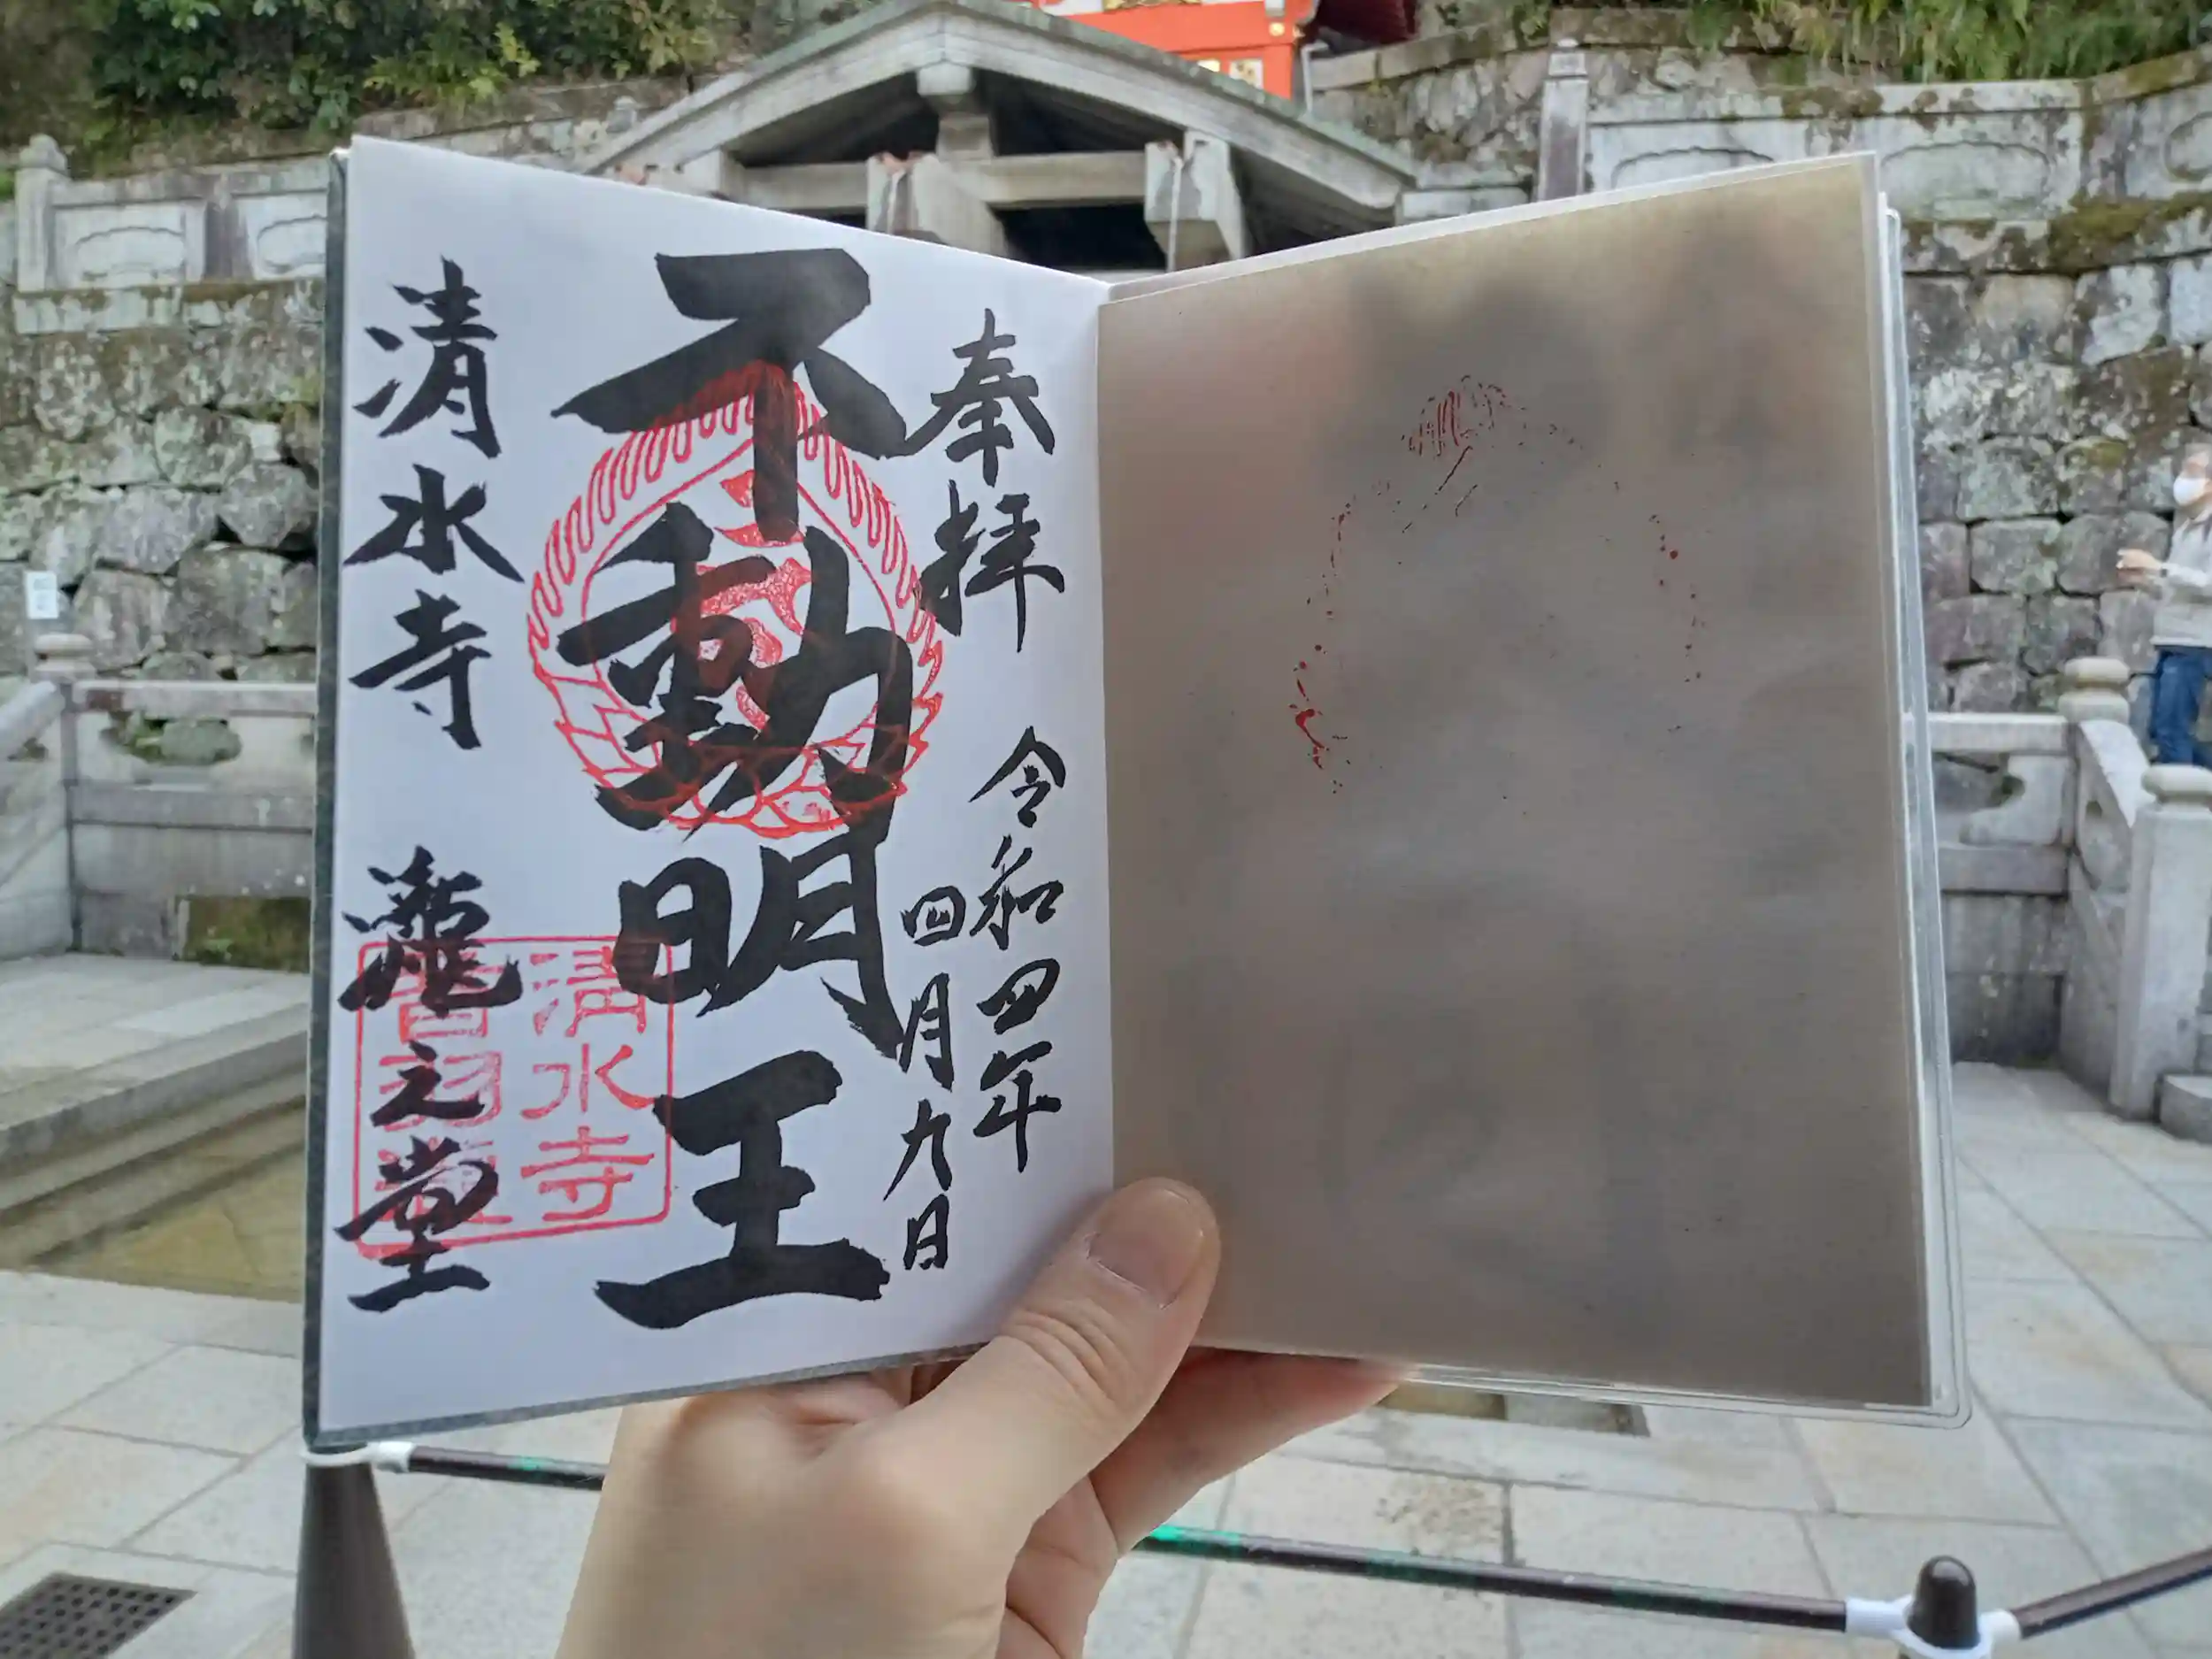 奉拝
令和四年
四月九日
不動明王
清水寺
瀧之堂
清水寺
音羽